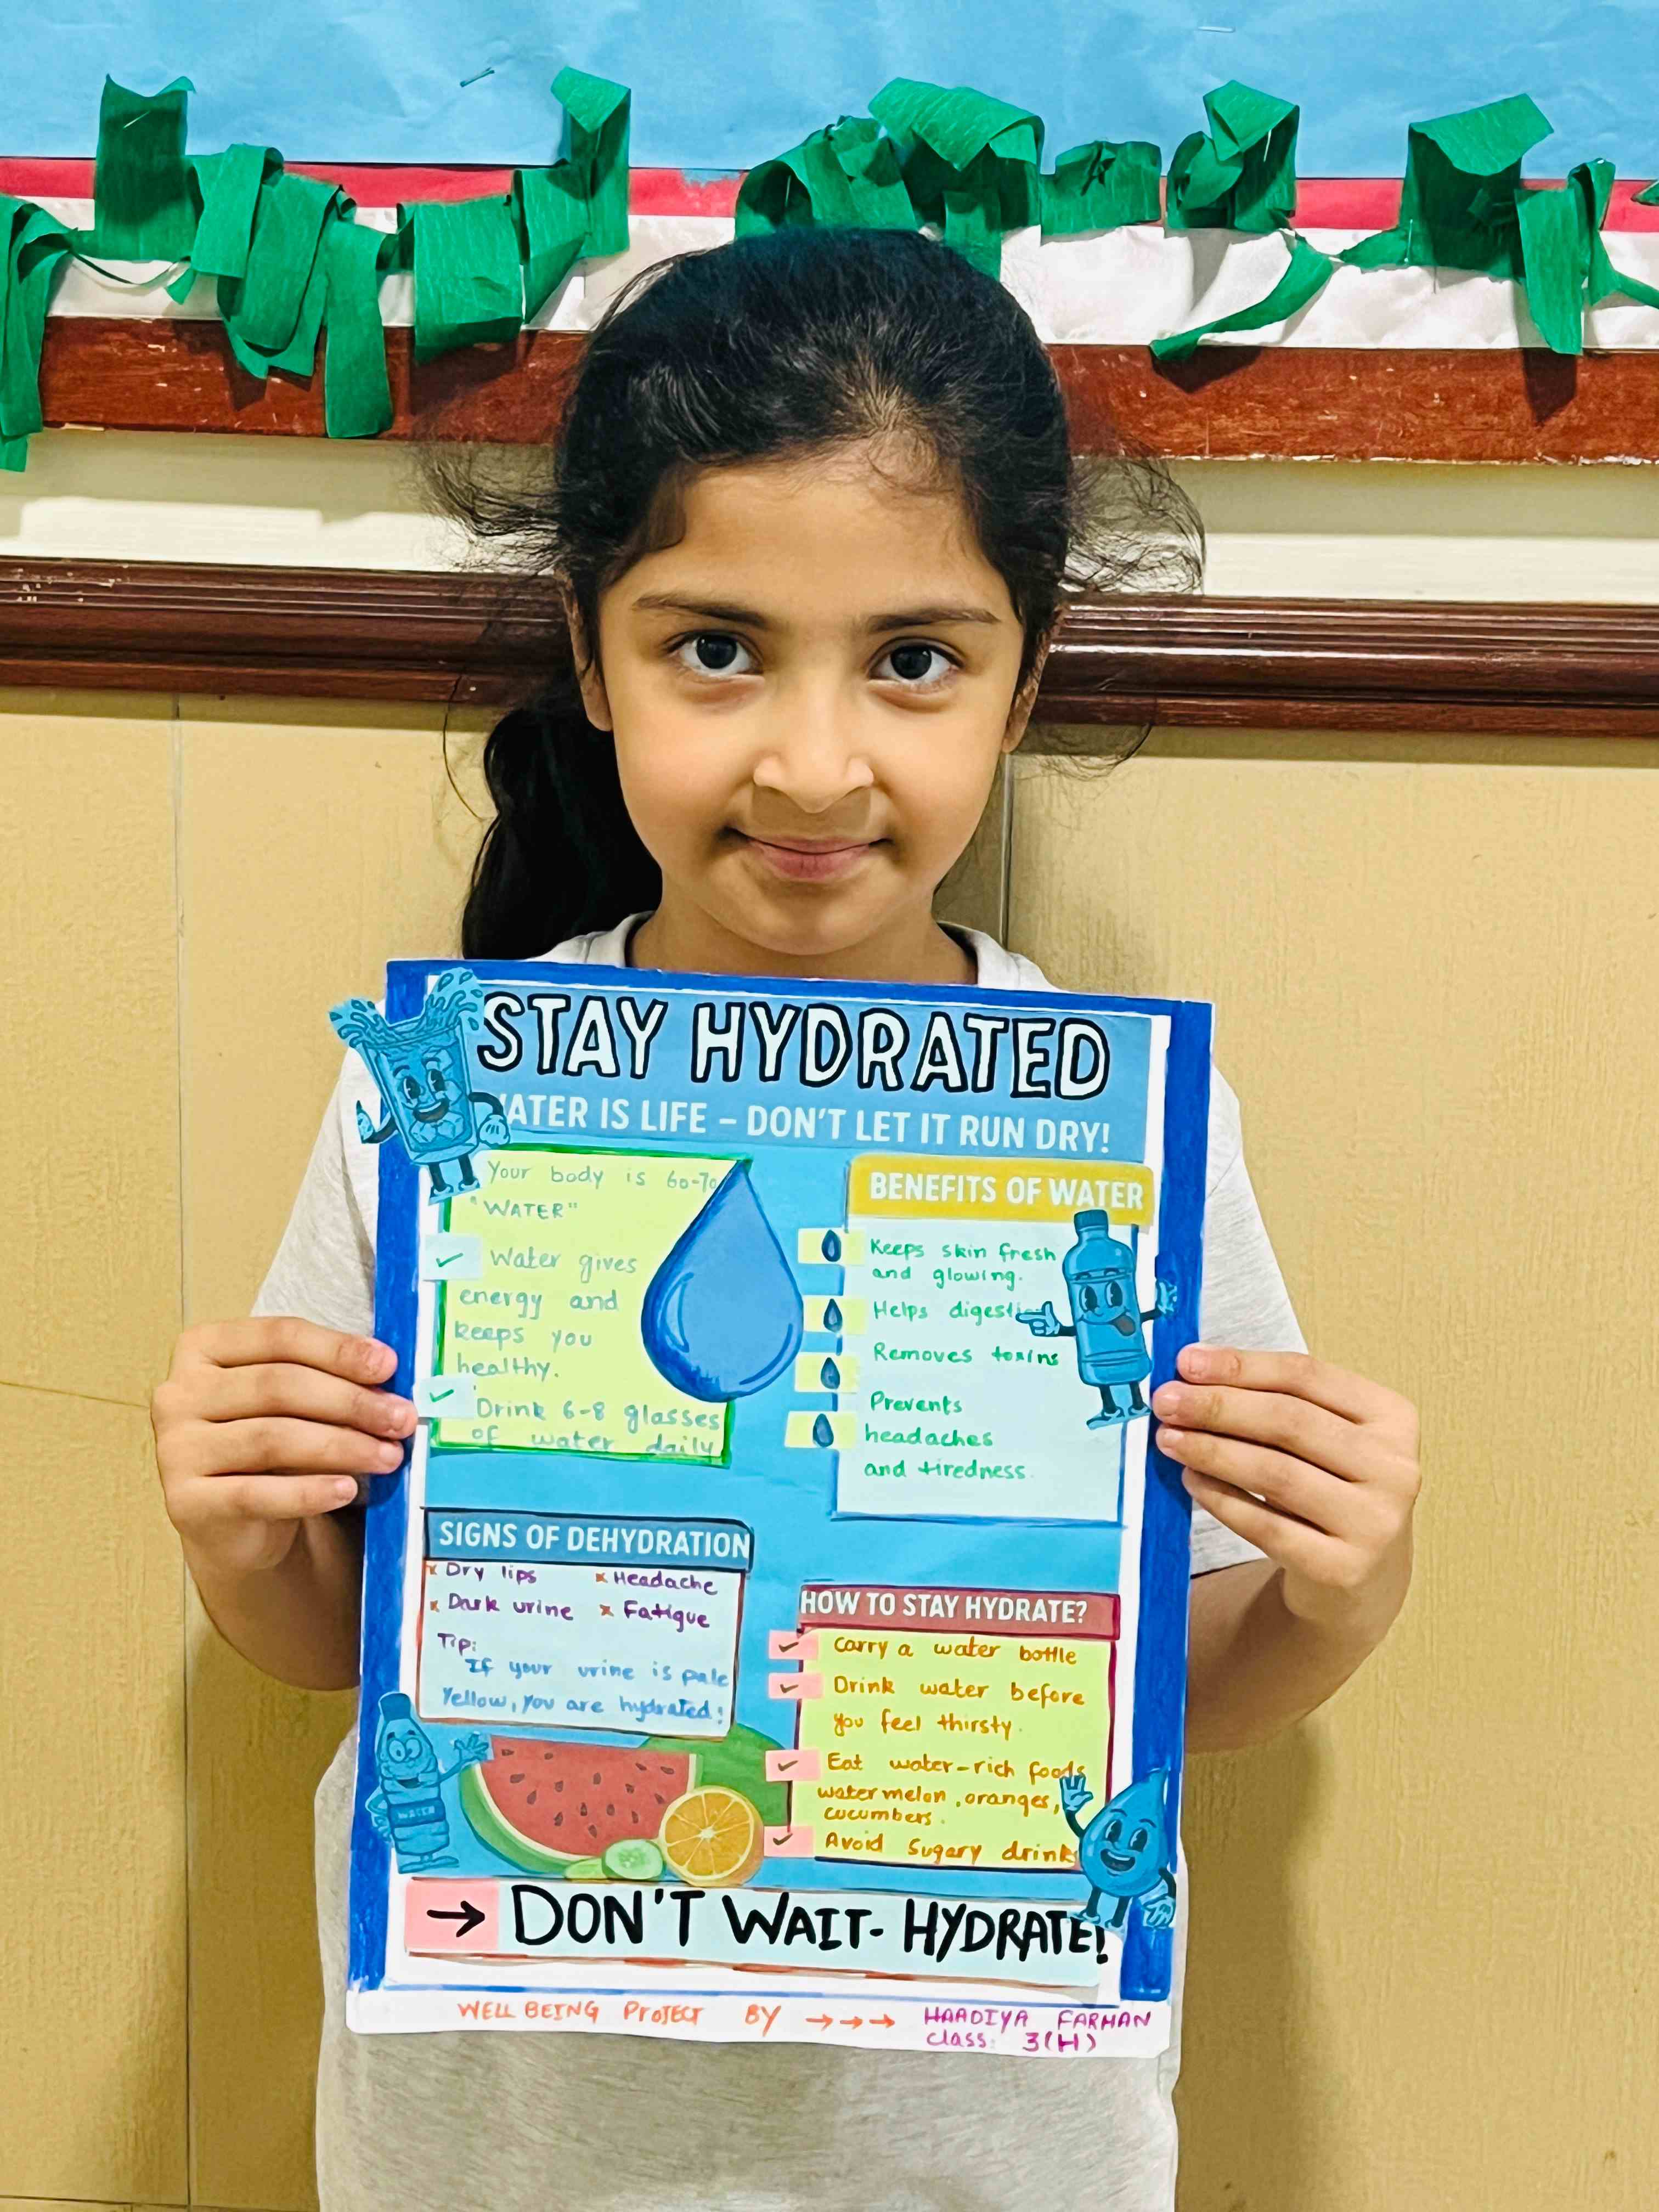 STAY HYDRATED
WATER IS LIFE – DON'T LET IT RUN DRY!
Your body is 60-70
"WATER"
Water gives
energy and
keeps you
healthy.
Drink 6-8 glasses
of water daily
BENEFITS OF WATER
Keeps skin fresh
and glowing.
Helps digestion
Removes toxins
Prevents
headaches
and tiredness.
SIGNS OF DEHYDRATION
x Dry lips x Headache
x Dark urine x Fatigue
Tip:
If your urine is pale
Yellow, you are hydrated!
HOW TO STAY HYDRATE?
Carry a water bottle
Drink water before
you feel thirsty.
Eat water-rich foods
watermelon, oranges,
cucumbers.
Avoid Sugary drinks
WATER
→ DON'T WAIT- HYDRATE!
WELL BEING PROJECT BY →→→ HAADIYA FARHAN
class: 3(H)